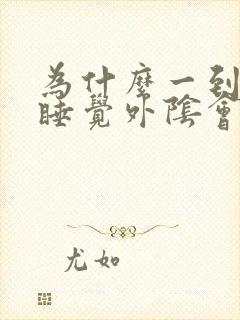 為什麼一到
睡覺外陰會
尤如